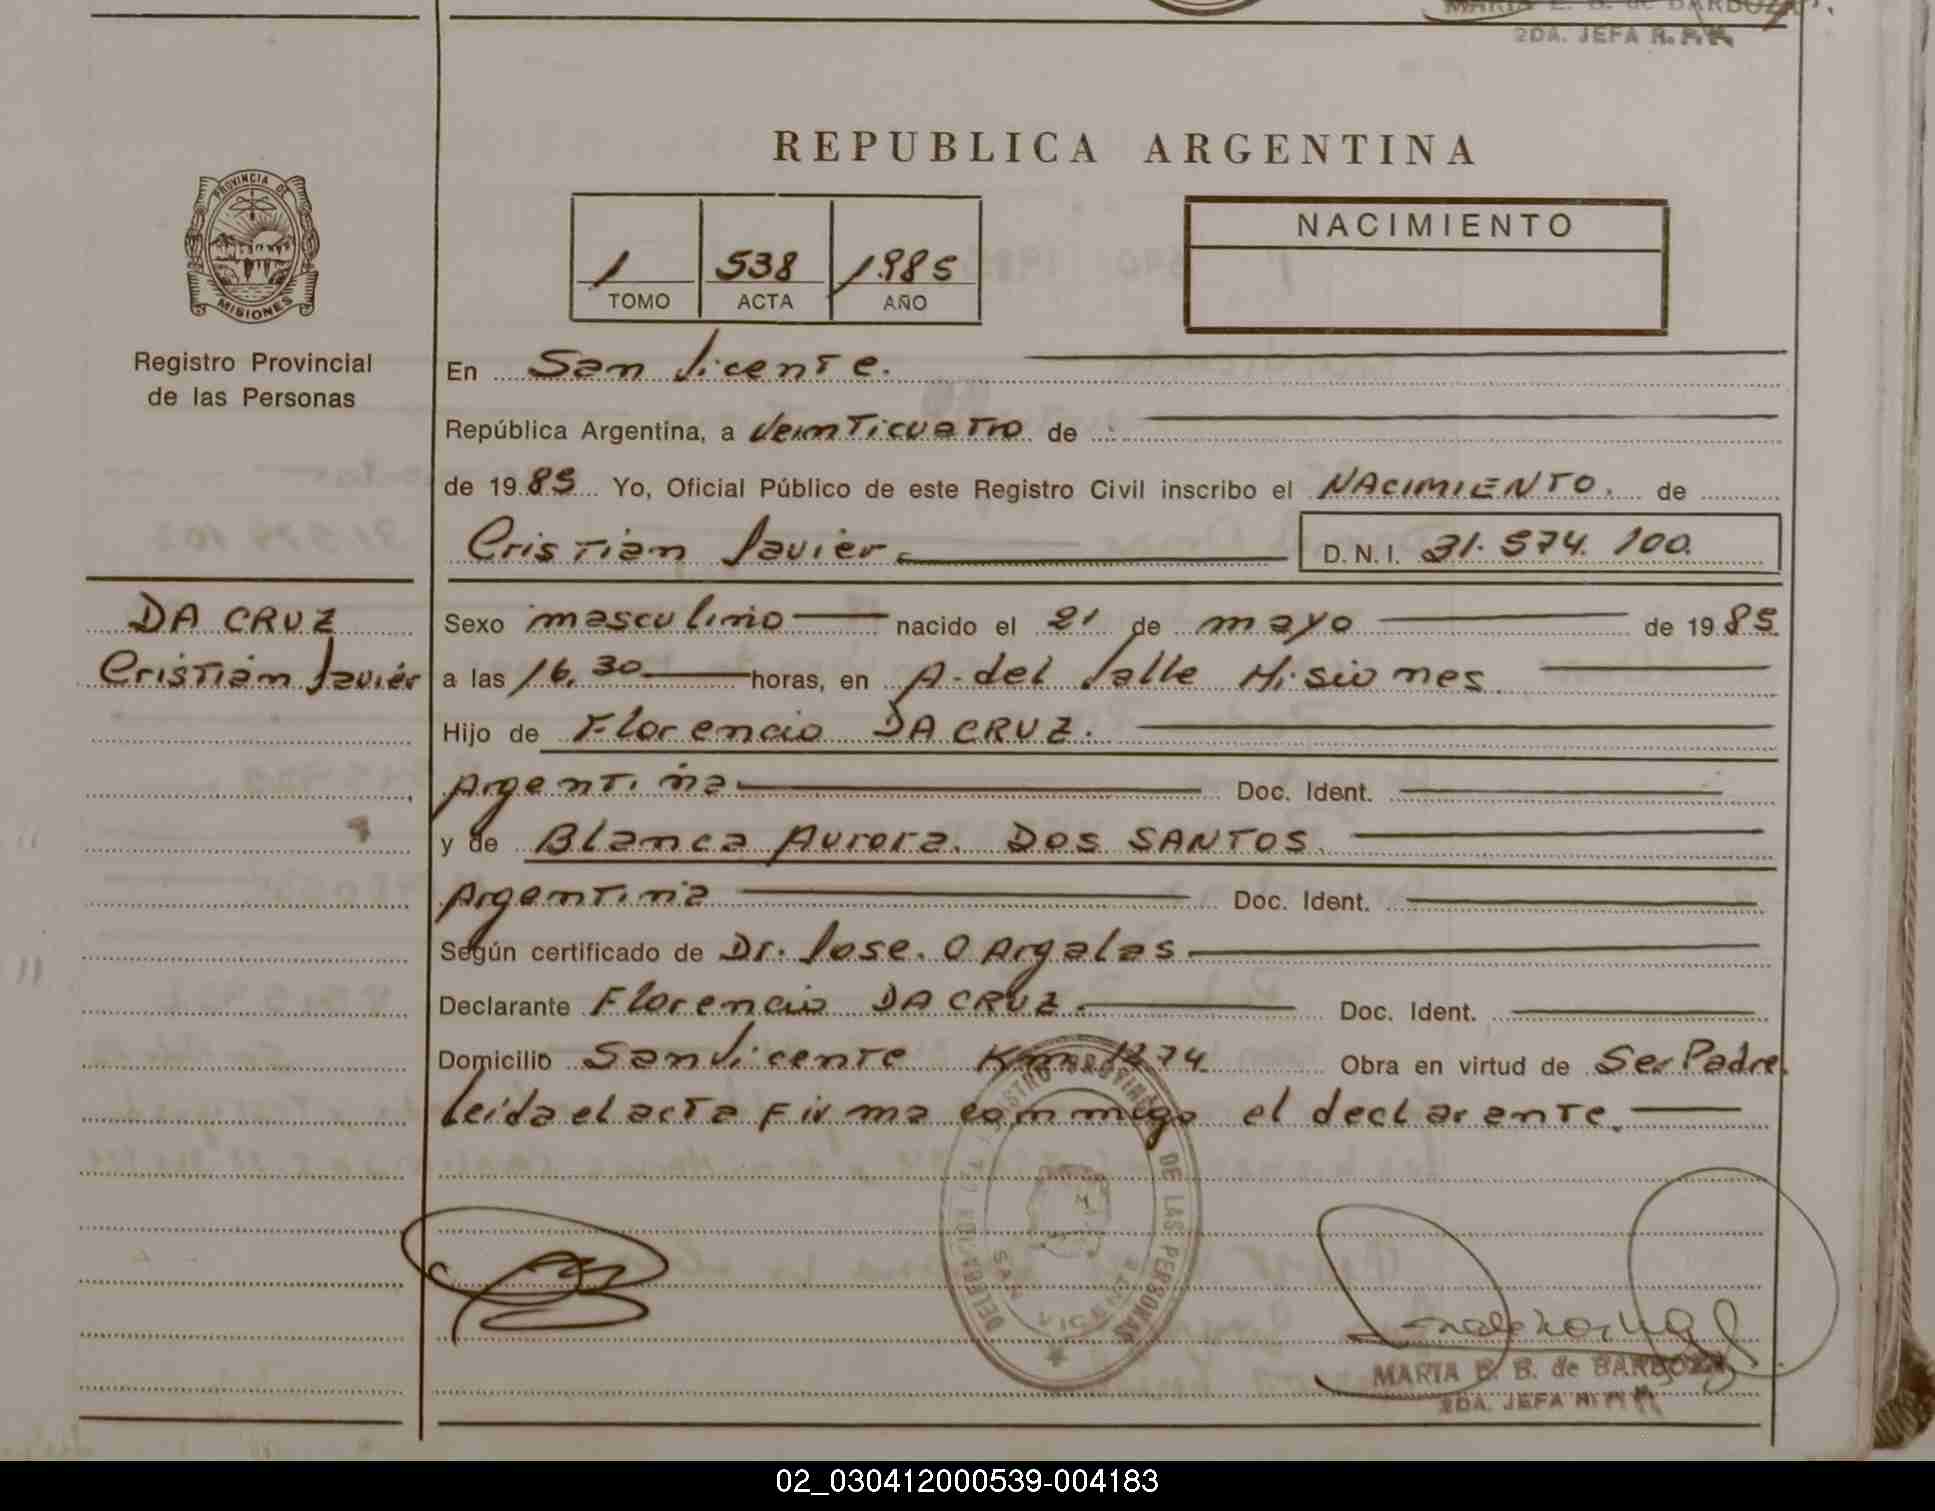 MARIA E. B. de BARBOZA
2DA. JEFA R.P.P.
REPUBLICA ARGENTINA
PROVINCIA DE
MISIONES
Registro Provincial
de las Personas
1 538 1985
TOMO ACTA AÑO
NACIMIENTO
En San Vicente.
República Argentina, a Veinticuatro de
de 19 85 Yo, Oficial Público de este Registro Civil inscribo el NACIMIENTO. de
Cristian Javier D.N.I. 31.574.100.
DA CRUZ
Cristian Javier
Sexo masculino nacido el 21 de mayo de 19 85.
a las 16,30 horas, en A. del Valle Misiones
Hijo de Florencio DA CRUZ.
Argentina Doc. Ident.
y de Blanca Aurora. DOS SANTOS.
Argentina Doc. Ident.
Según certificado de Dr. Jose. O Argalas
Declarante Florencio DA CRUZ. Doc. Ident.
Domicilio San Vicente Km 1274 Obra en virtud de Ser Padre.
Leída el acta Firma conmigo el declarante.
REGISTRO PROVINCIAL DE LAS PERSONAS
SAN VICENTE
MARIA E. B. de BARBOZA
2DA. JEFA
02_030412000539-004183